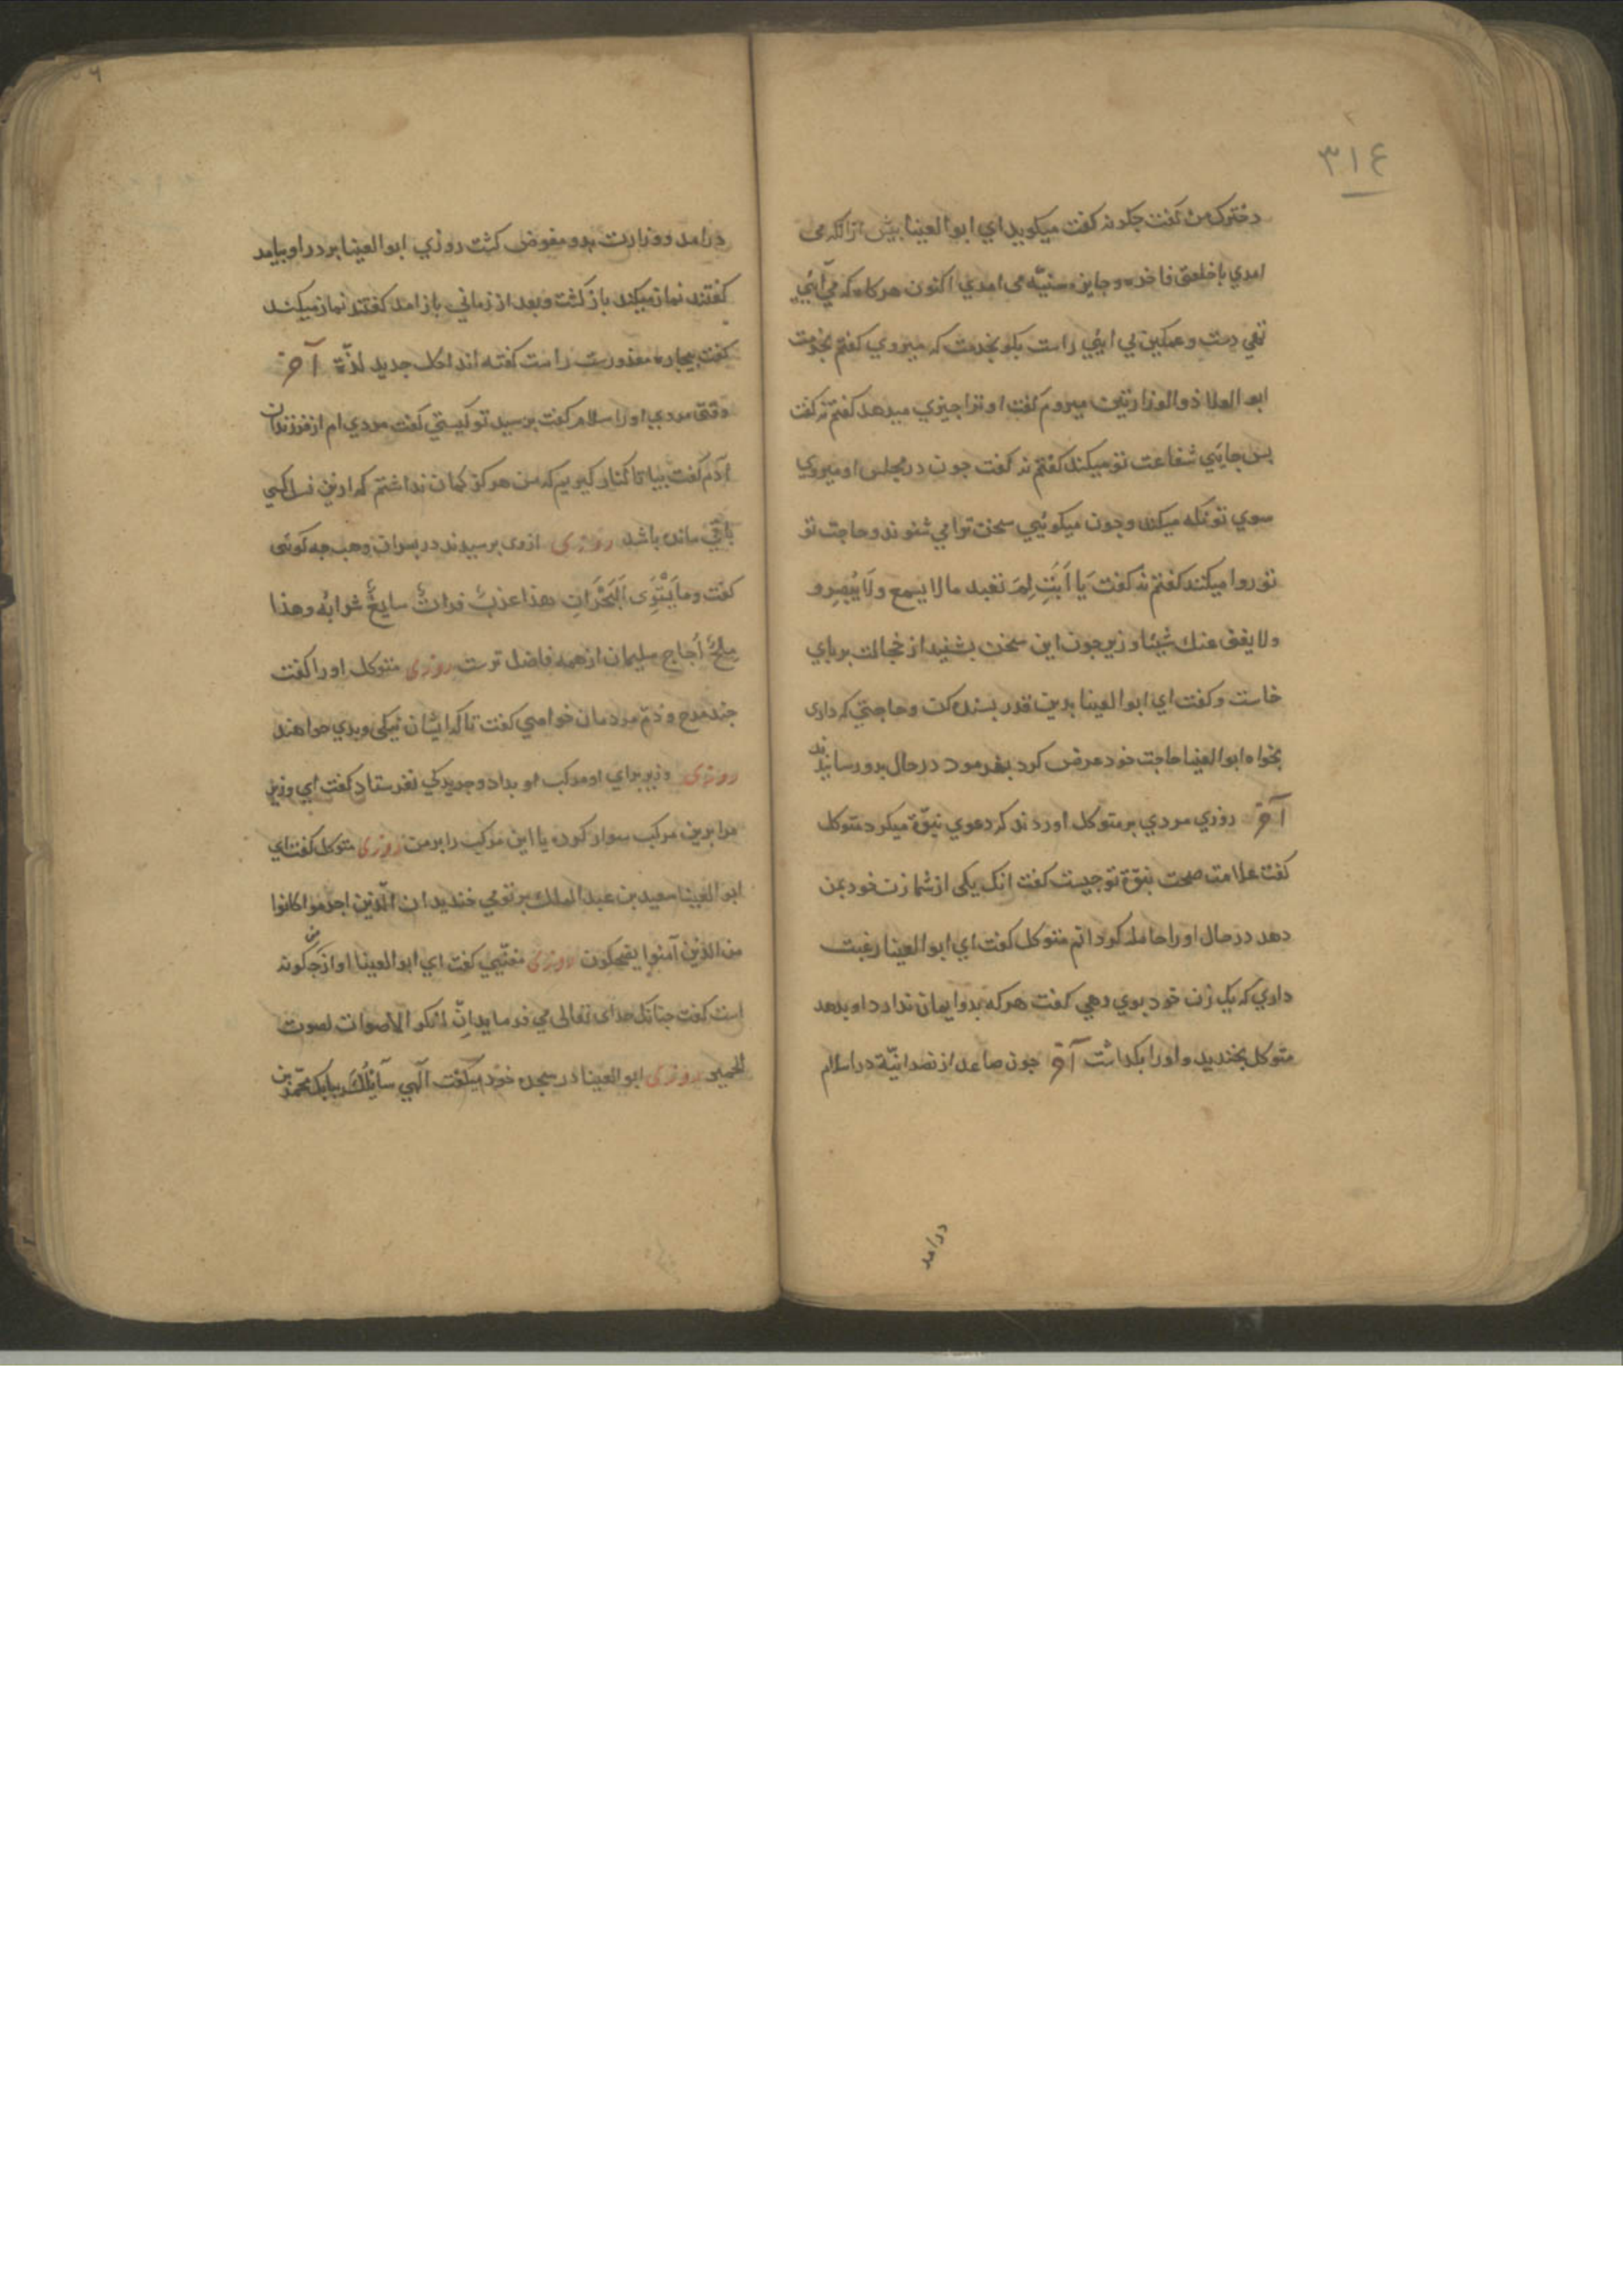 ٣١٤
دخترک من گفت جکونه گفت میکوید ای ابو العینا بیش ازانکه می
امدي با خلعتی فاخره و جایزه سنیّه می امدي اکنون هر کاه که می آئی
تهي دست و غمکین می ایئي راست بکو بخدمت که میروي کفتم بخدمت
ابو العلا ذو الوزارتین میروم کفت او ترا جیزي میدهد کفتم نه کفت
بس جایئي شفاعت تو میکند کفتم نه کفت جون در مجلس او میروي
سوي تو نکه میکند و جون میکوئیي سخن ترا می شنوند و حاجت تو
تو روا میکنند کفتم نه کفت یَا اَبَتِ لِمَ تعبد مالا یسمع ولَا یُبْصِرو
ولا یغنی عنك شیئا وزیر جون این سخن بشنید از خجالت بر بای
خاست و کفت ای ابو العینا بدین قدر بسنده کن و حاجتي که داری
بخواه ابو العینا حاجت خود عرض کرد بفرمود در حال بدو رسانیدند
آخر روزي مردي بر متوکل اوردند که دعوي نبوّة میکرد متوکل
کفت علامت صحت نبوّة تو جیست کفت انک یکی از شما زن خود بمن
دهد در حال او را حامله کردانم متوکل کفت اي ابو العینا رغبت
داري که یک زن خود بوي دهي کفت هر که بدو ایمان ندارد او بدهد
متوکل بخندید و اورا بکذاشت آخر جون صاعد از نصرانیّة در اسلام
درامد
درامد و وزارت بدو مفوض کشت روزي ابو العینا بر در او بیامد
کفتند نماز میکند باز کشت و بعد از زماني باز امد کفتند نماز میکند
کفت بیجاره معذورست راست کفته اند لکل جدید لذّة آخر
وقتی مردي اورا سلام کفت برسید تو کیستي کفت مردي ام از فرزندان
آدم کفت بیا تا کنار کیریم که من هرکز کمان نداشتم که ازین نسل کسي
باقي مانده باشد روزی ازوی برسیدند در بسران وهب جه کوئی
کفت وما یَسْتَوِی اَلبَحْرَانِ هذا عذبٌ فراتٌ سایغٌ شرابُه وهذا
مِلحٌ اُجاج سلیمان از همه فاضل ترست روزی متوکل اورا کفت
جند مدح و ذمّ مردمان خواهي کفت تا که ایشان نیکی و بدي خواهند
روزی وزیر براي او مرکب بداد و جو یدکي نفرستاد کفت اي وزیر
مرا برین مرکب سوار کرده یا این مرکب را بر من روزی متوکل کفت اي
ابو العینا سعید بن عبد الملك بر تو می خندید ان الّذین اجرموا کانوا
من الذین آمنوا یضحکون روزی مغنّیي کفت اي ابو العینا اوازش جکونه
است کفت جنانک خدای تعالی می فرماید انّ انکر الأصوات لصوت
الحمیر روزی ابو العینا در سجده خود میکفت الهي سایلُكَ ببابك محمّد بن